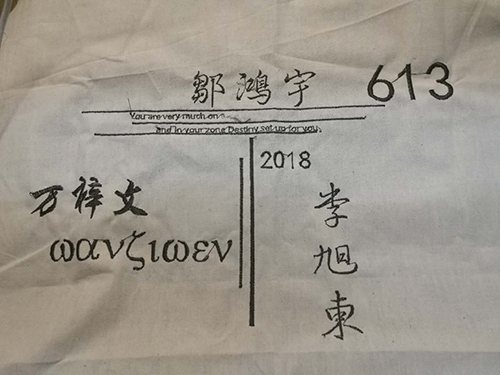 邹鸿宇 613
You are very much on
and in your zone Destiny set up for you.
2018
万梓文
ωανζιωεν
李旭東